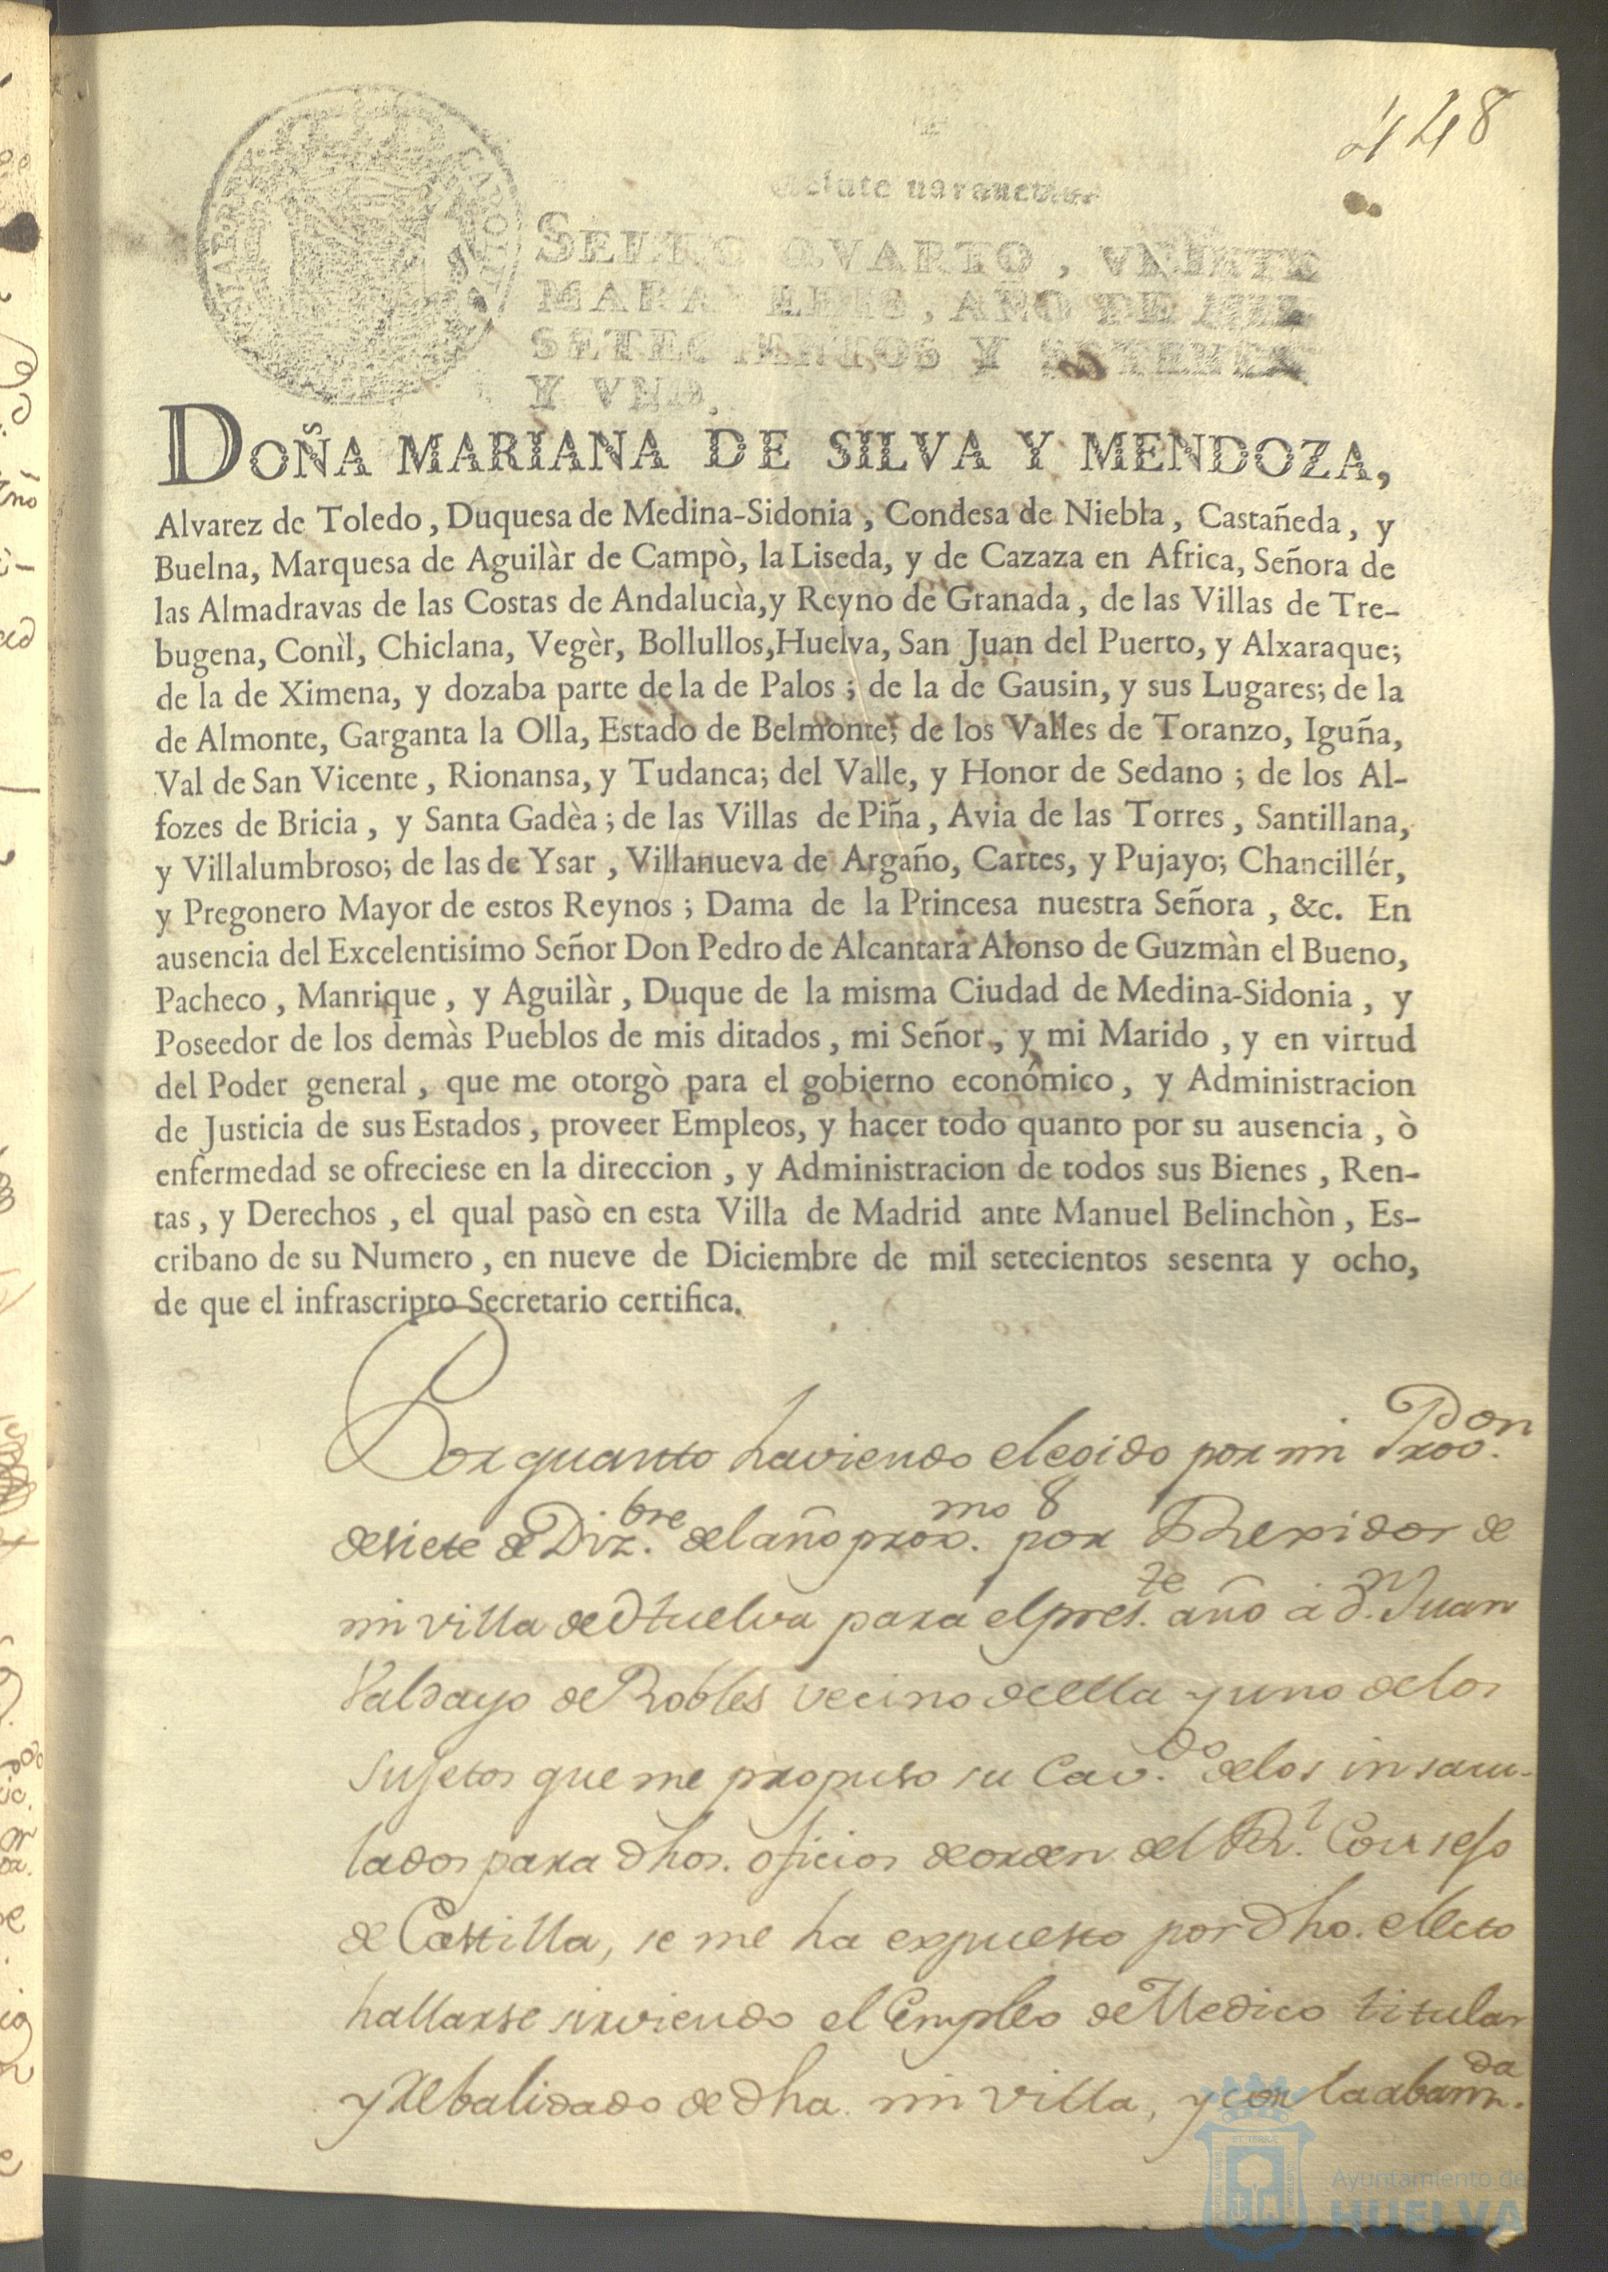 448
Veinte maravedis
SELLO QVARTO, VEINTE
MARAVEDIS, AÑO DE MIL
SETECIENTOS Y SETENTA
Y VNO.
DOÑA MARIANA DE SILVA Y MENDOZA,
Alvarez de Toledo, Duquesa de Medina-Sidonia, Condesa de Niebla, Castañeda, y
Buelna, Marquesa de Aguilàr de Campò, la Liseda, y de Cazaza en Africa, Señora de
las Almadravas de las Costas de Andalucìa, y Reyno de Granada, de las Villas de Tre-
bugena, Conìl, Chiclana, Vegèr, Bollullos, Huelva, San Juan del Puerto, y Alxaraque;
de la de Ximena, y dozaba parte de la de Palos; de la de Gausin, y sus Lugares; de la
de Almonte, Garganta la Olla, Estado de Belmonte; de los Valles de Toranzo, Iguña,
Val de San Vicente, Rionansa, y Tudanca; del Valle, y Honor de Sedano; de los Al-
fozes de Bricia, y Santa Gadèa; de las Villas de Piña, Avia de las Torres, Santillana,
y Villalumbroso; de las de Ysar, Villanueva de Argaño, Cartes, y Pujayo; Chancillér,
y Pregonero Mayor de estos Reynos; Dama de la Princesa nuestra Señora, &c. En
ausencia del Excelentisimo Señor Don Pedro de Alcantara Alonso de Guzmàn el Bueno,
Pacheco, Manrique, y Aguilàr, Duque de la misma Ciudad de Medina-Sidonia, y
Poseedor de los demàs Pueblos de mis ditados, mi Señor, y mi Marido, y en virtud
del Poder general, que me otorgò para el gobierno económico, y Administracion
de Justicia de sus Estados, proveer Empleos, y hacer todo quanto por su ausencia, ò
enfermedad se ofreciese en la direccion, y Administracion de todos sus Bienes, Ren-
tas, y Derechos, el qual pasò en esta Villa de Madrid ante Manuel Belinchòn, Es-
cribano de su Numero, en nueve de Diciembre de mil setecientos sesenta y ocho,
de que el infrascripto Secretario certifica.
Por quanto haviendo elegido por mi Proo.on
de siete de Diz.bre del año prox.mo por Rexidor de
mi villa de Huelva para el pres.te año à d.n Juan
Valdayo de Robles vecino de ella y uno de los
sujetos que me propuso su Cav.do de los insacu-
lados para dhos. oficios de orden del R.l Consejo
de Castilla, se me ha expuesto por dho. electo
hallarse sirviendo el Empleo de Medico titular
y Rebalidado de dha mi villa, y con la
Ayuntamiento de
HUELVA